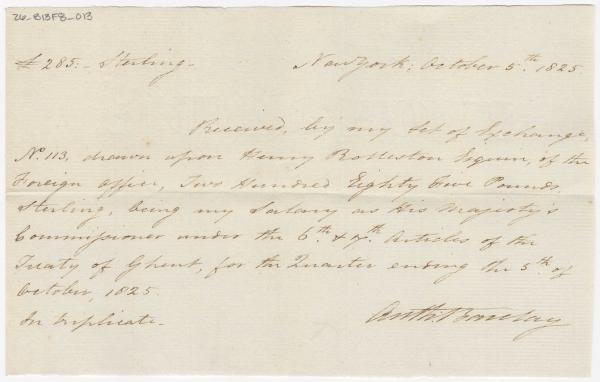 26-B13F8-013
£285.- Sterling- New York; October 5th. 1825.
Received, by my Set of Exchange,
No. 113, drawn upon Henry Rolleston Esquire, of the
Foreign Office, Two Hundred Eighty Five Pounds
Sterling, being my Salary as His Majesty's
Commissioner under the 6th. & 7th. Articles of the
Treaty of Ghent, for the Quarter ending the 5th. of
October, 1825.
In triplicate- Anth: Barclay